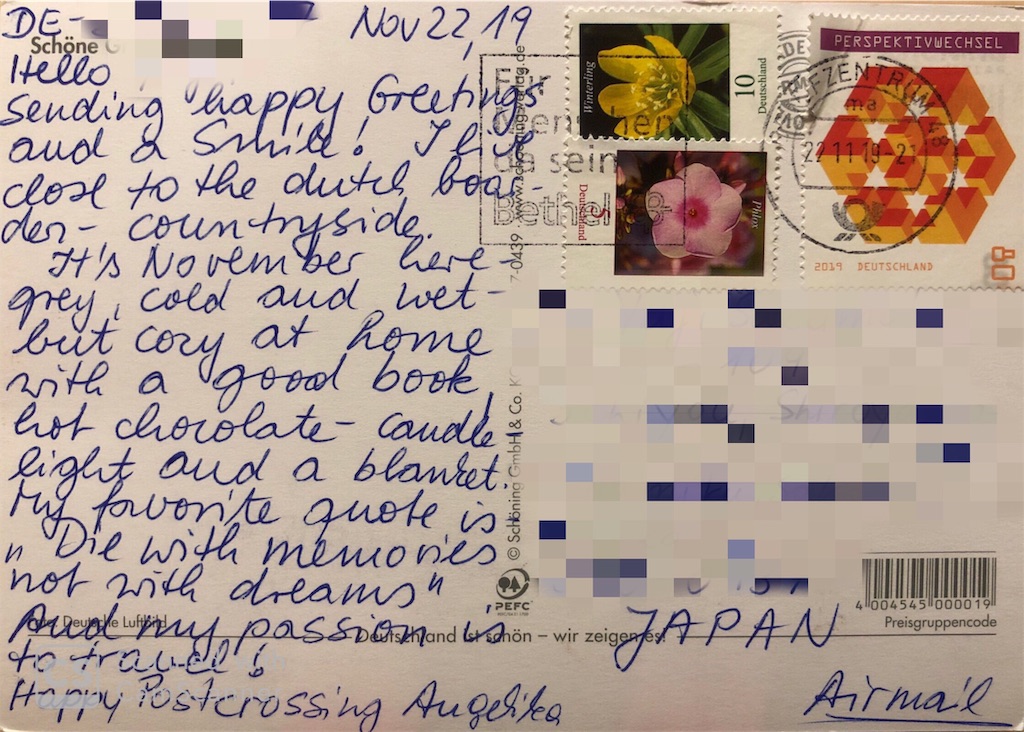 DE-
Nov 22, 19
Schöne
Hello
sending happy Greetings
and a Smile! I live
close to the dutch boar-
der - countryside.
It's November here -
grey, cold and wet -
but cozy at home
with a good book,
hot chocolate - candle
light and a blanket.
My favorite quote is
„Die with memories
not with dreams"
And my passion is
to travel!
Happy Postcrossing Angelika
Deutsche Luftbild
Deutschland ist schön – wir zeigen es!
© Schöning GmbH & Co. K
-0439
PEFC
Für
Menschen
da sein
Bethel
Winterling
10
Deutschland
Phlox
5
Deutschland
PERSPEKTIVWECHSEL
2019 DEUTSCHLAND
80
BRIEFZENTRUM
22.11.19-21
JAPAN
Airmail
4 004545 000019
Preisgruppencode